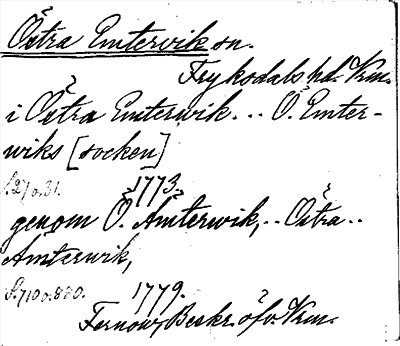 Östra Emtervik sn.
Fryksdals hd. Vrm.
i Östra Emterwik... Ö. Emter-
wiks [socken]
S. 27 o. 31. 1773.
genom Ö. Ämterwik,.. Östra..
Ämterwik,
S. 710 o. 880. 1779.
Fernow, Beskr. öfv. Vrm.